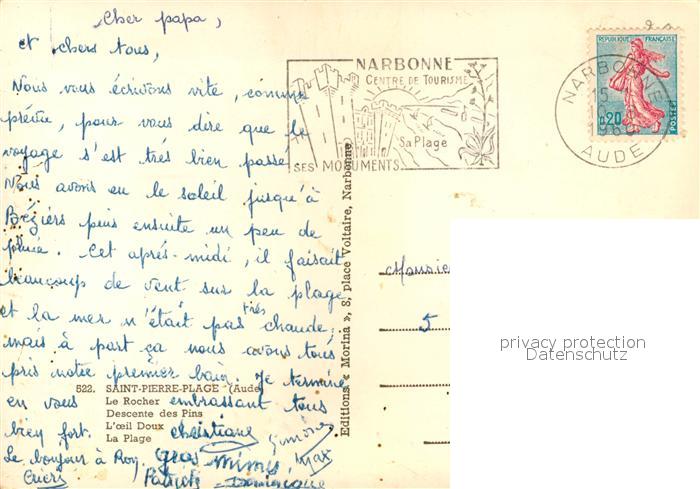 Cher papa,
et chers tous,
Nous vous écrivons vite, comme
prévu, pour vous dire que le
voyage s'est très bien passé.
Nous avons eu le soleil jusqu'à
Béziers puis ensuite un peu de
pluie. Cet après-midi, il faisait
beaucoup de vent sur la plage
et la mer n'était pas très chaude;
mais à part ça nous avons tous
pris notre premier bain. Je termine
en vous embrassant tous
bien fort. Christiane
Simone
Max
Le bonjour à Roy. Gros mimis.
Patrick Dominique
522. SAINT-PIERRE-PLAGE (Aude)
Le Rocher
Descente des Pins
L'œil Doux
La Plage
Editions « Morina », 8, place Voltaire, Narbonne
NARBONNE
CENTRE DE TOURISME
Sa Plage
SES MONUMENTS
NARBONNE
15
AUDE
REPUBLIQUE FRANÇAISE
0,20
POSTES
Monsieur
5
privacy protection
Datenschutz